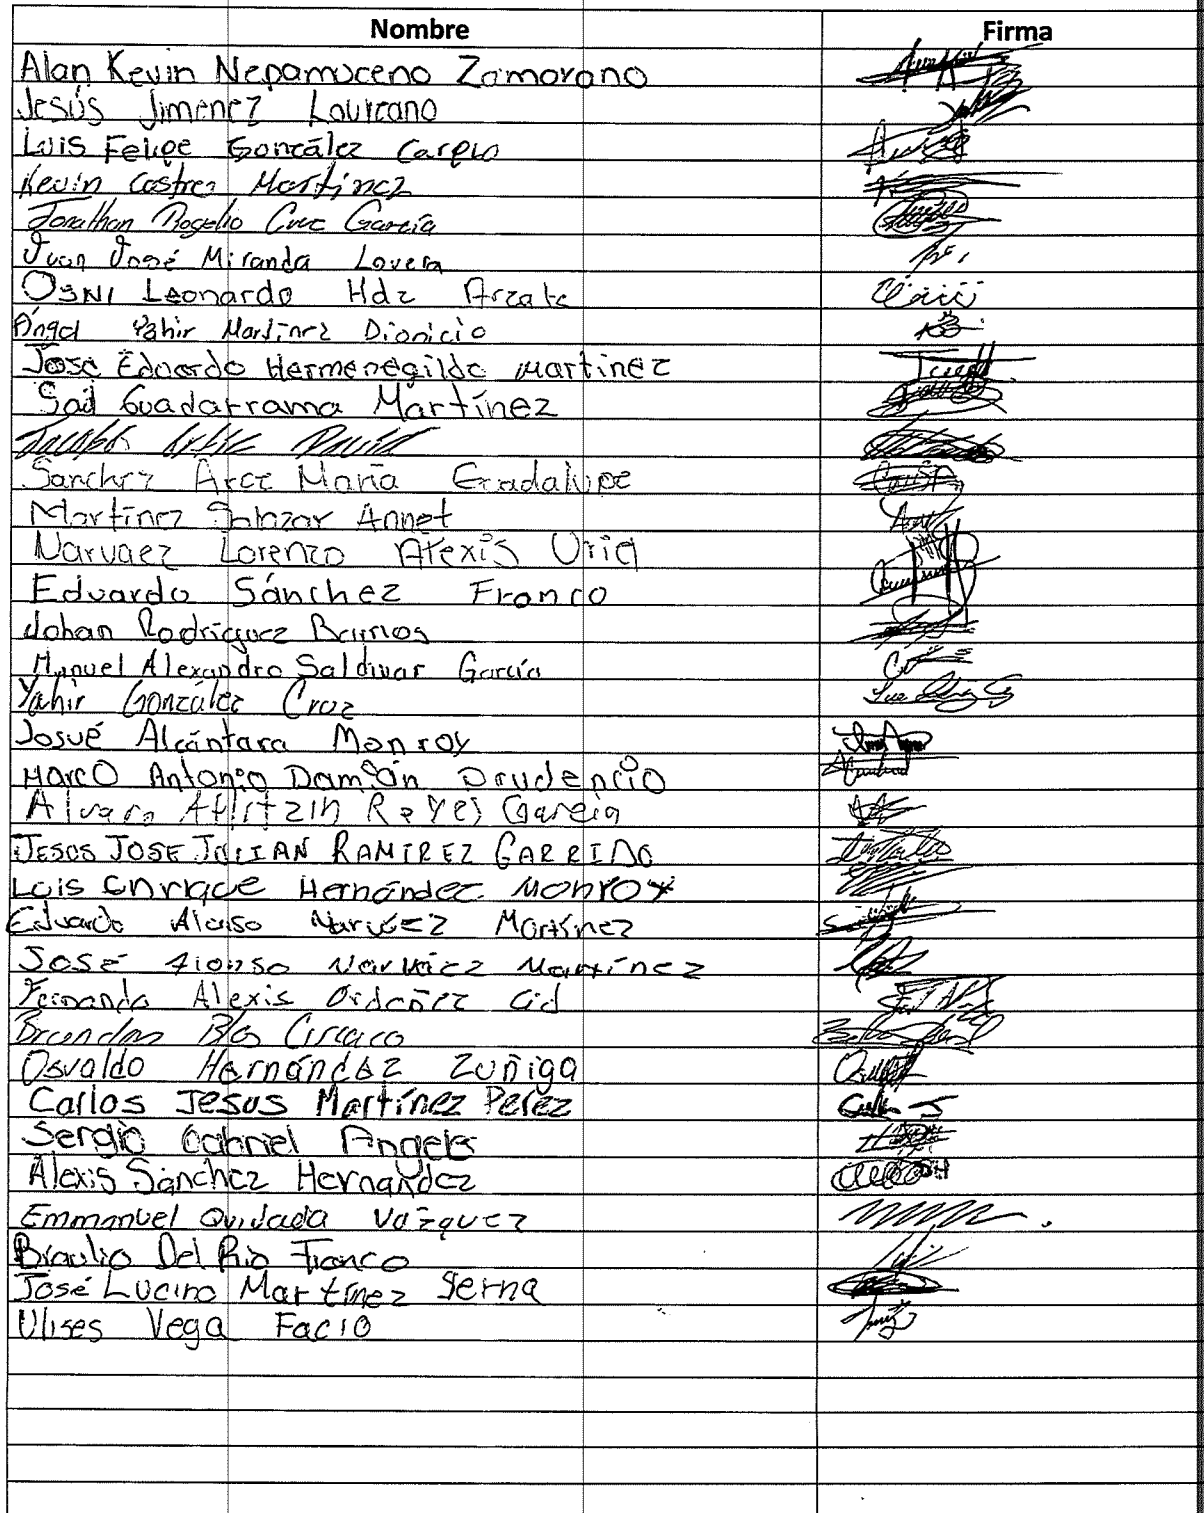 Nombre Firma
Alan Kevin Nepamuceno Zamorano
Jesús Jimenez Laureano
Luis Felipe González Carpio
Kevin Castrez Martínez
Jonathan Rogelio Cruz García
Juan José Miranda Lovera
Osni Leonardo Hdz Arzate
Ángel Yahir Martínez Dionicio
Jose Eduardo Hermenegildo Martinez
Said Guadarrama Martínez
David
Sanchez Arce María Guadalupe
Martínez Salazar Annet
Narvaez Lorenzo Alexis Uriel
Eduardo Sánchez Franco
Johan Rodriguez Barrios
Manuel Alexandro Saldivar García
Yahir González Cruz
Josué Alcántara Monroy
Marco Antonio Damián Prudencio
Alvaro Reyes García
JESUS JOSE JULIAN RAMIREZ GARRIDO
Luis Enrique Hernández Monroy
Eduardo Alonso Narváez Martínez
José Alonso Narváez Martínez
Fernanda Alexis Ordoñez Cid
Brandon Blas Ciriaco
Osvaldo Hernández Zuñiga
Carlos Jesus Martínez Perez
Sergio Gabriel Angeles
Alexis Sánchez Hernandez
Emmanuel Quijada Vazquez
Braulio Del Rio Franco
José Lucino Martínez Serna
Ulises Vega Facio